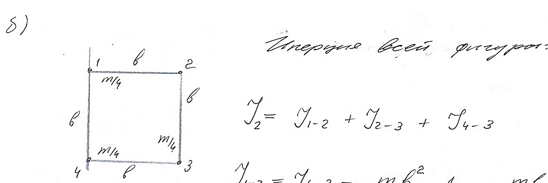 б)
1 в 2
m/4
в в
m/4 m/4
4 в 3
Инерция всей фигуры:
J₂ = J₁₋₂ + J₂₋₃ + J₄₋₃